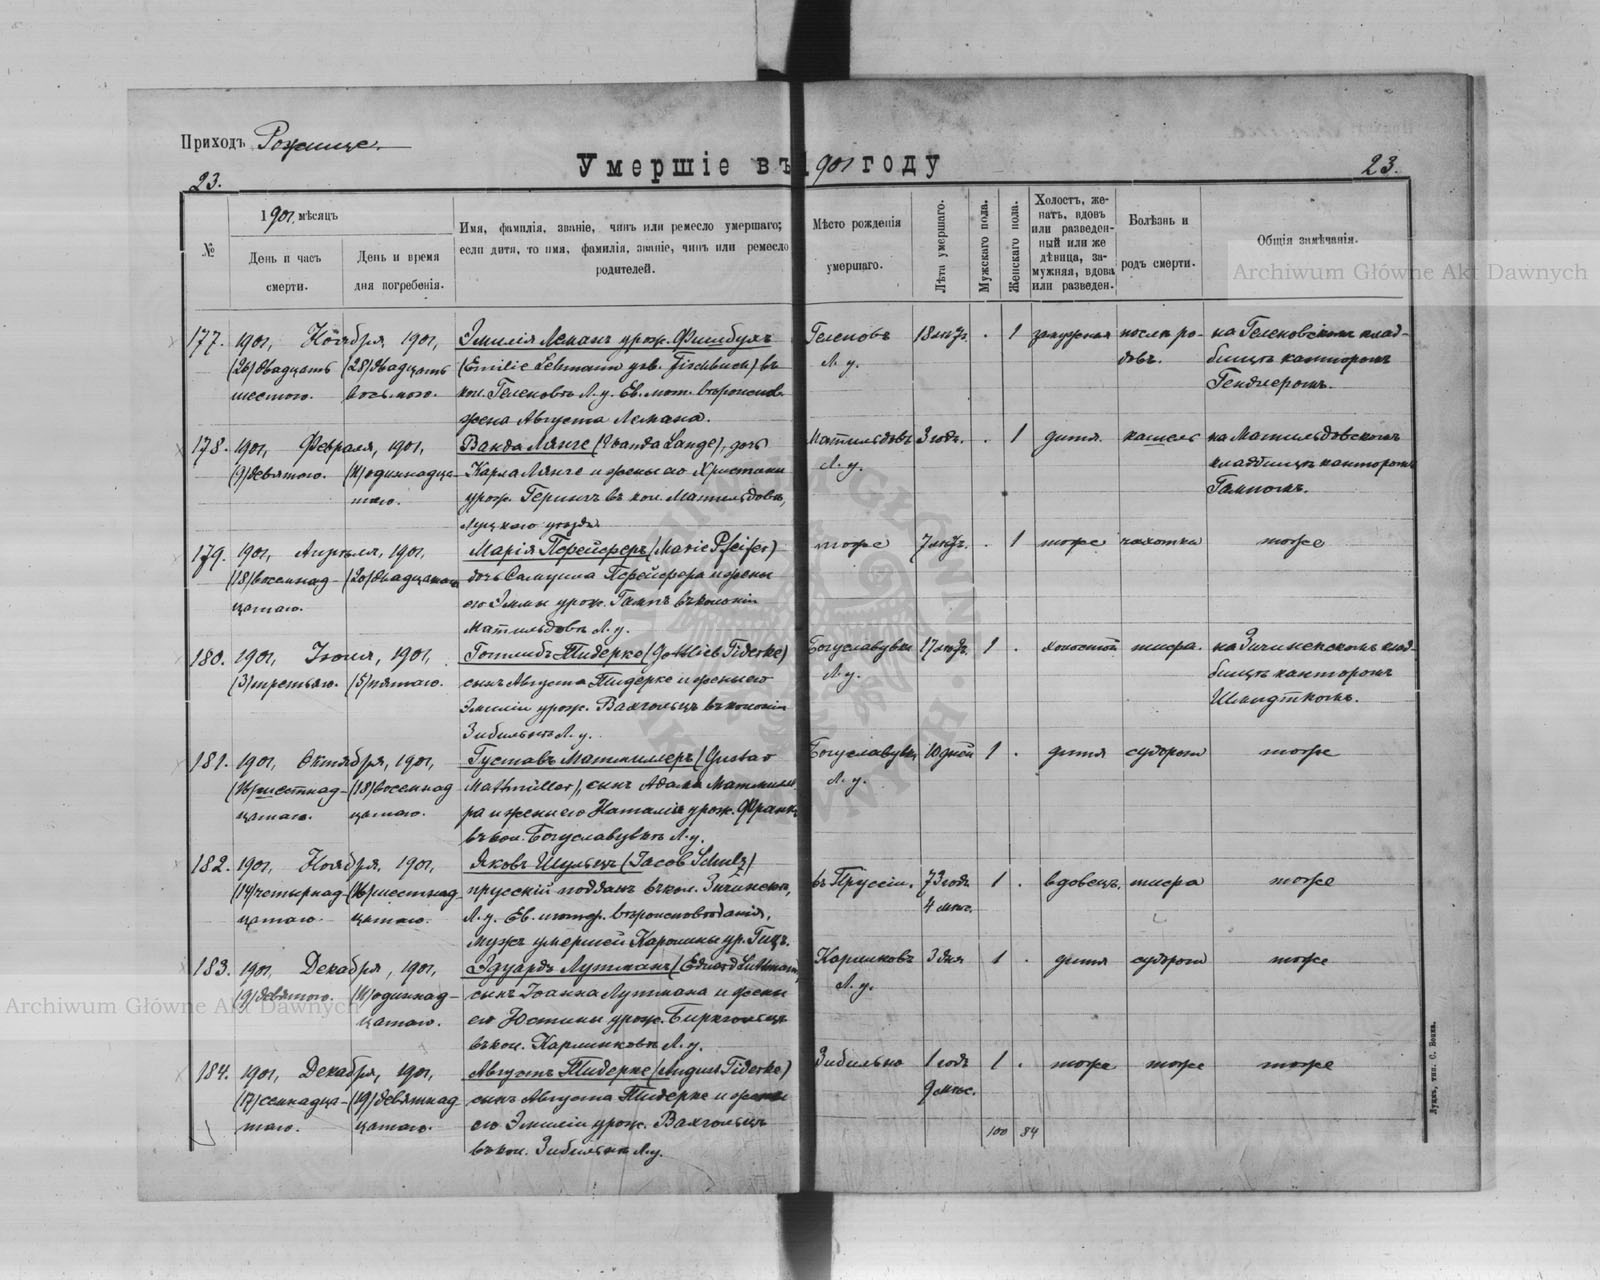 Приходъ Рожище.
Умершіе въ 1901 году
23.
23.
№
1901, мѣсяцъ
День и часъ смерти.
День и время дня погребенія.
Имя, фамилія, званіе, чинъ или ремесло умершаго;
если дитя, то имя, фамилія, званіе, чинъ или ремесло
родителей.
Мѣсто рожденія
умершаго.
Лѣта умершаго.
Мужскаго пола.
Женскаго пола.
Холостъ, же-
натъ, вдовъ
или разведен-
ный или же
дѣвица, за-
мужняя, вдова
или разведен.
Болѣзнь и
родъ смерти.
Общія замѣчанія.
177. 1901, Ноября, 1901, Эмилія Леманъ урож. Фишбухъ Геленовъ 18 лѣтъ . 1 замужняя послѣ ро- на Геленовскомъ клад-
(26) двадцать (28) двадцать (Emilie Lehmann geb. Fischbuch) въ Л. у. довъ. бищѣ канторомъ
шестого. восьмого. кол. Геленовъ Л. у. Ев. лют. вѣроисп.
жена Августа Лемана.
178. 1901, Февраля, 1901, Ванда Лянге (Wanda Lange), дочь Матильдовъ 3 года. . 1 дитя. кашель на Матильдовскомъ
(9) девятого. (11) одиннадца- Карла Лянге и жены его Христины Л. у. кладбищѣ канторомъ
таго. урож. Герингъ въ кол. Матильдовъ,
Луцкого уѣзда.
179. 1901, Апрѣля, 1901, Марія Пфейферъ (Marie Pfeifer) тоже 7 лѣтъ. . 1 тоже чахотка тоже
(18) восемнад- (20) двадцатаго дочь Самуила Пфейфера и жены
цатаго. его Эммы урож. Гампъ въ колоніи
Матильдовъ Л. у.
180. 1901, Іюля, 1901, Готлибъ Тидерке (Gottlieb Tiderke) Богуславувка 17 лѣтъ. 1 . холостой тифъ. на клад-
(3) третьяго. (5) пятаго. сынъ Августа Тидерке и жены его Л. у. бищѣ канторомъ
Эмиліи урож. Вахгольцъ въ колоніи
Зибильно Л. у.
181. 1901, Октября, 1901, Густавъ Матмиллеръ (Gustav Богуславувка 10 дней 1 . дитя судороги тоже
(16) шестнад- (18) восемнад Mathmüller), сынъ Адама Матмилле Л. у.
цатаго. цатаго. ра и жены его Наталіи урож. Франкъ
въ кол. Богуславувкѣ Л. у.
182. 1901, Ноября, 1901, Яковъ Шульцъ (Jacob Schulz) въ Пруссіи, 73 года 1 . вдовецъ, тифъ тоже
(14) четырнад- (16) шестнад прусскій поддан. въ кол. 4 мѣс.
цатаго цатаго. Л. у. Ев. лютер. вѣроисповѣданія,
мужъ умершей Каролины ур.
183. 1901, Декабря, 1901, Эдуардъ Лутманъ (Eduard Luttmann) Карлинковъ 3 дня 1 . дитя судороги тоже
(9) девятого. (11) одиннад- сынъ Іоанна Лутмана и жены Л. у.
цатаго. его Юстины урож. Биркгольцъ
въ кол. Карлинковъ Л. у.
184. 1901, Декабря, 1901, Августъ Тидерке (August Tiderke) Зибильно 1 годъ 1 . тоже тоже тоже
(17) семнадца- (19) девятнад сынъ Августа Тидерке и жены 9 мѣс.
таго. цатаго. его Эмиліи урож. Вахгольцъ
въ кол. Зибильно Л. у.
100 84
Луцкъ, тип. С. Бонка.
Archiwum Główne Akt Dawnych
Archiwum Główne Akt Dawnych